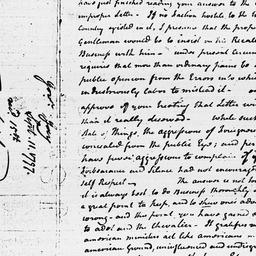 have just finished reading your answer to the
improper Letter - If no faction hostile to the
Country existed in it, I presume that the prop
Gentleman would be to insist on his Recal
Business with him - under present Circum
requires that more than ordinary pains be
public opinion from the Errors into which
industriously labor to mislead it -
approves of your treating that Letter with
than it really deserved - While such
State of Things, the aggressions of Foreigners
concealed from the public Eye; and per
have fewer aggressions to complain of if
Forbearance and Silence had not encouraged
Self Respect - The answer is not h
it is always best to do Business thoroughly
a great point to keep, and to shew ones adv
wrong - and this point you have gained
to and over the Chevalier - It gratifies
american minister act like americans
american Ground, uninfluenced and undirec
Gov. Jay
Sept. 11. 1797